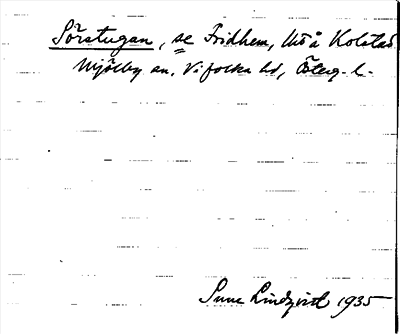 Sörstugan, se Fridhem, Utö å Kolstad
Mjölby sn, Vifolka hd, Österg. l.
Sune Lindqvist 1935